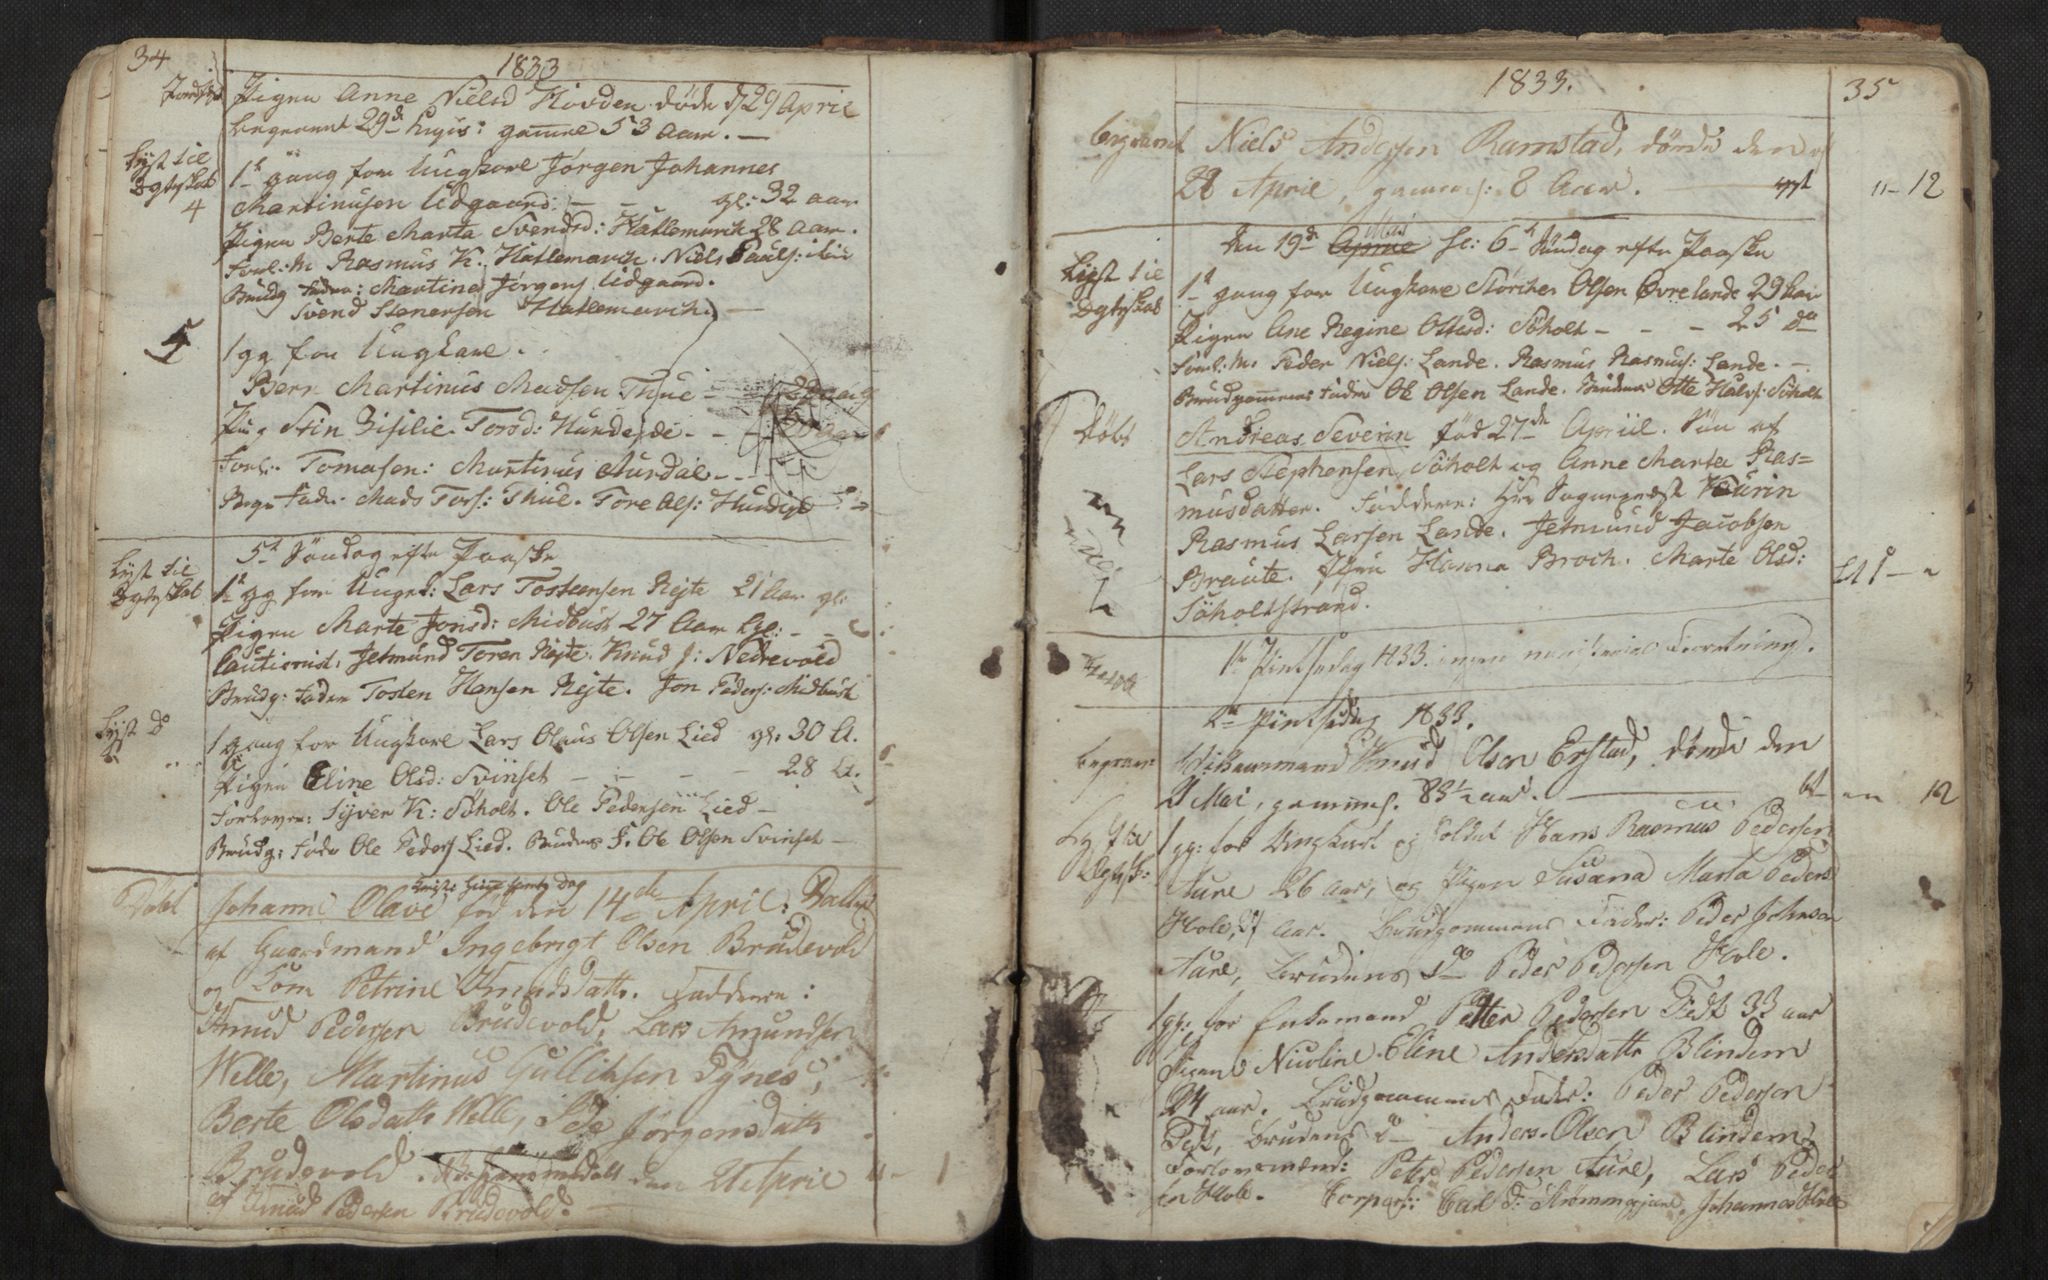 34
1833
Pigen Anne Nielsd Hovden døde d 29 April
begravet 29de gamel 53 Aar. —
Lyst til
Egteskab
4
1te gang for Ungkarl Jørgen Johannes
Martinusen Udgaard: — — gl: 32 aar
Pigen Berte Marta Svendsd: Hatlemarck 28 aar.
Forl: M Rasmus K. Hatlemarck. Niels Pauls:
Brudg Fader: Martines Jørgens Udgaard.
Svend Stenersen Hatlemarck —
5
1 gg for Ungkarl.
Bern Martinus Madsen Thue —
Pig Stin Sisilie Torsd: Hundejde — —
Forl. Tomasen: Martinus Aurdal — —
Brgs Fader: Mads Tors: Thue. Tore Ols: Hundejd
Lyst til
Egteskab
5te Søndag efter Paaske
1te gg for Ungk: Lars Tostensen Rejte 21 Aar gl:
Pigen Marte Jonsd: Midbust 27 Aar gl: —
Cautionist: Jetmund Toren Rejte. Knud J: Nedrevold
Brudg: Fader Tosten Hansen Rejte. Jon Peders: Midbust
Lyst do
1 gang for Ungkarl Lars Olaus Olsen Lied gl: 30 A.
Pigen Eline Olsd: Svinset — — — 28 A.
Forlover: Syver K: Søholt. Ole Pedersen Lied —
Brudg: Fader Ole Peders Lied. Brudens F. Ole Olsen Svinset —
Døbt
Johanne Olave fød den 14de April: Datter
af Gaardmand Ingebrigt Olsen Brudevold
og Kone Petrine Knudsdatter. Faddere:
Knud Pedersen Brudevold, Lars Amundsen
Welle, Martinus Gullichsen Tynes,
Berte Olsdatter Welle, Jørgensdatter
Brudevold. Hjemmedøbt den 21 April
af Knud Pedersen Brudevold. 1
1833. 35
begravet Niels Andersen Ramstad, døde den
28 April, gammel: 8 Aar. — 11 – 12
Mai
Den 19de April se: 6te Søndag efter Paaske
Lyst til
Egteskab
1te gang for Ungkarl Støricher Olsen Øvrelande 29 Aar
Pigen Ane Regine Ottesd: Søholt — — — 25 do
Forl: M. Peder Niels: Lande. Rasmus Rasmus: Lande. —
Brudgommens Fader Ole Olsen Lande. Brudens Otte Halvs: Søholt
Døbt
Andreas Severin fød 27de April. Søn af
Lars Stephensen Søholt og Anne Marta Ras=
musdatter. Faddere: Hr Sogneprest Kurin
Rasmus Larsen Lande. Jetmund Jacobsen
Braute. Hanna Broch. Marte Olsd:
Søholtstrand.
1te Pintsedag 1833 ingen ministerial Forretning.
2den Pintsedag 1833.
begravet
Knud Olsen Erstad, døde den
2 Mai, gammel. 83½ aar. — 12
Lyst til
Egtsk:
1 gg: for Ungkarl og Soldat Hans Rasmus Pedersen
Aure 26 aar, og Pigen Susanna Marta Peders
Hole, aar. Brudgommens Fader: Peder Johnsen
Aure, Brudens do Peder Pedersen Hole.
1 gg: for Enkemand Petter Pedersen Fedt 33 aar
Pigen Nicoline Eline Andersdatter Blindem
24 aar. Brudgommens Fader: Peder Pedersen
Fedt, Brudens do — Anders Olsen Blindem
Forlovermænd: Peter Pedersen Aure, Lars Peder
sen Hole. Corpor: Carl D: Strømmegjerd, Johannes Hole